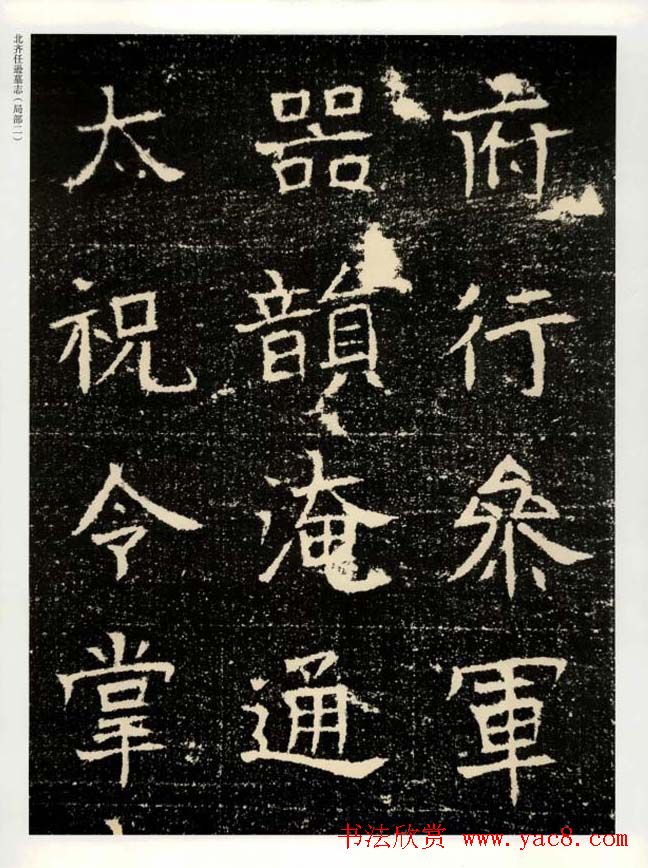 府行参軍
器韻淹通
太祝令掌
北齐任逊墓志（局部二）
书法欣赏 www.yac8.com